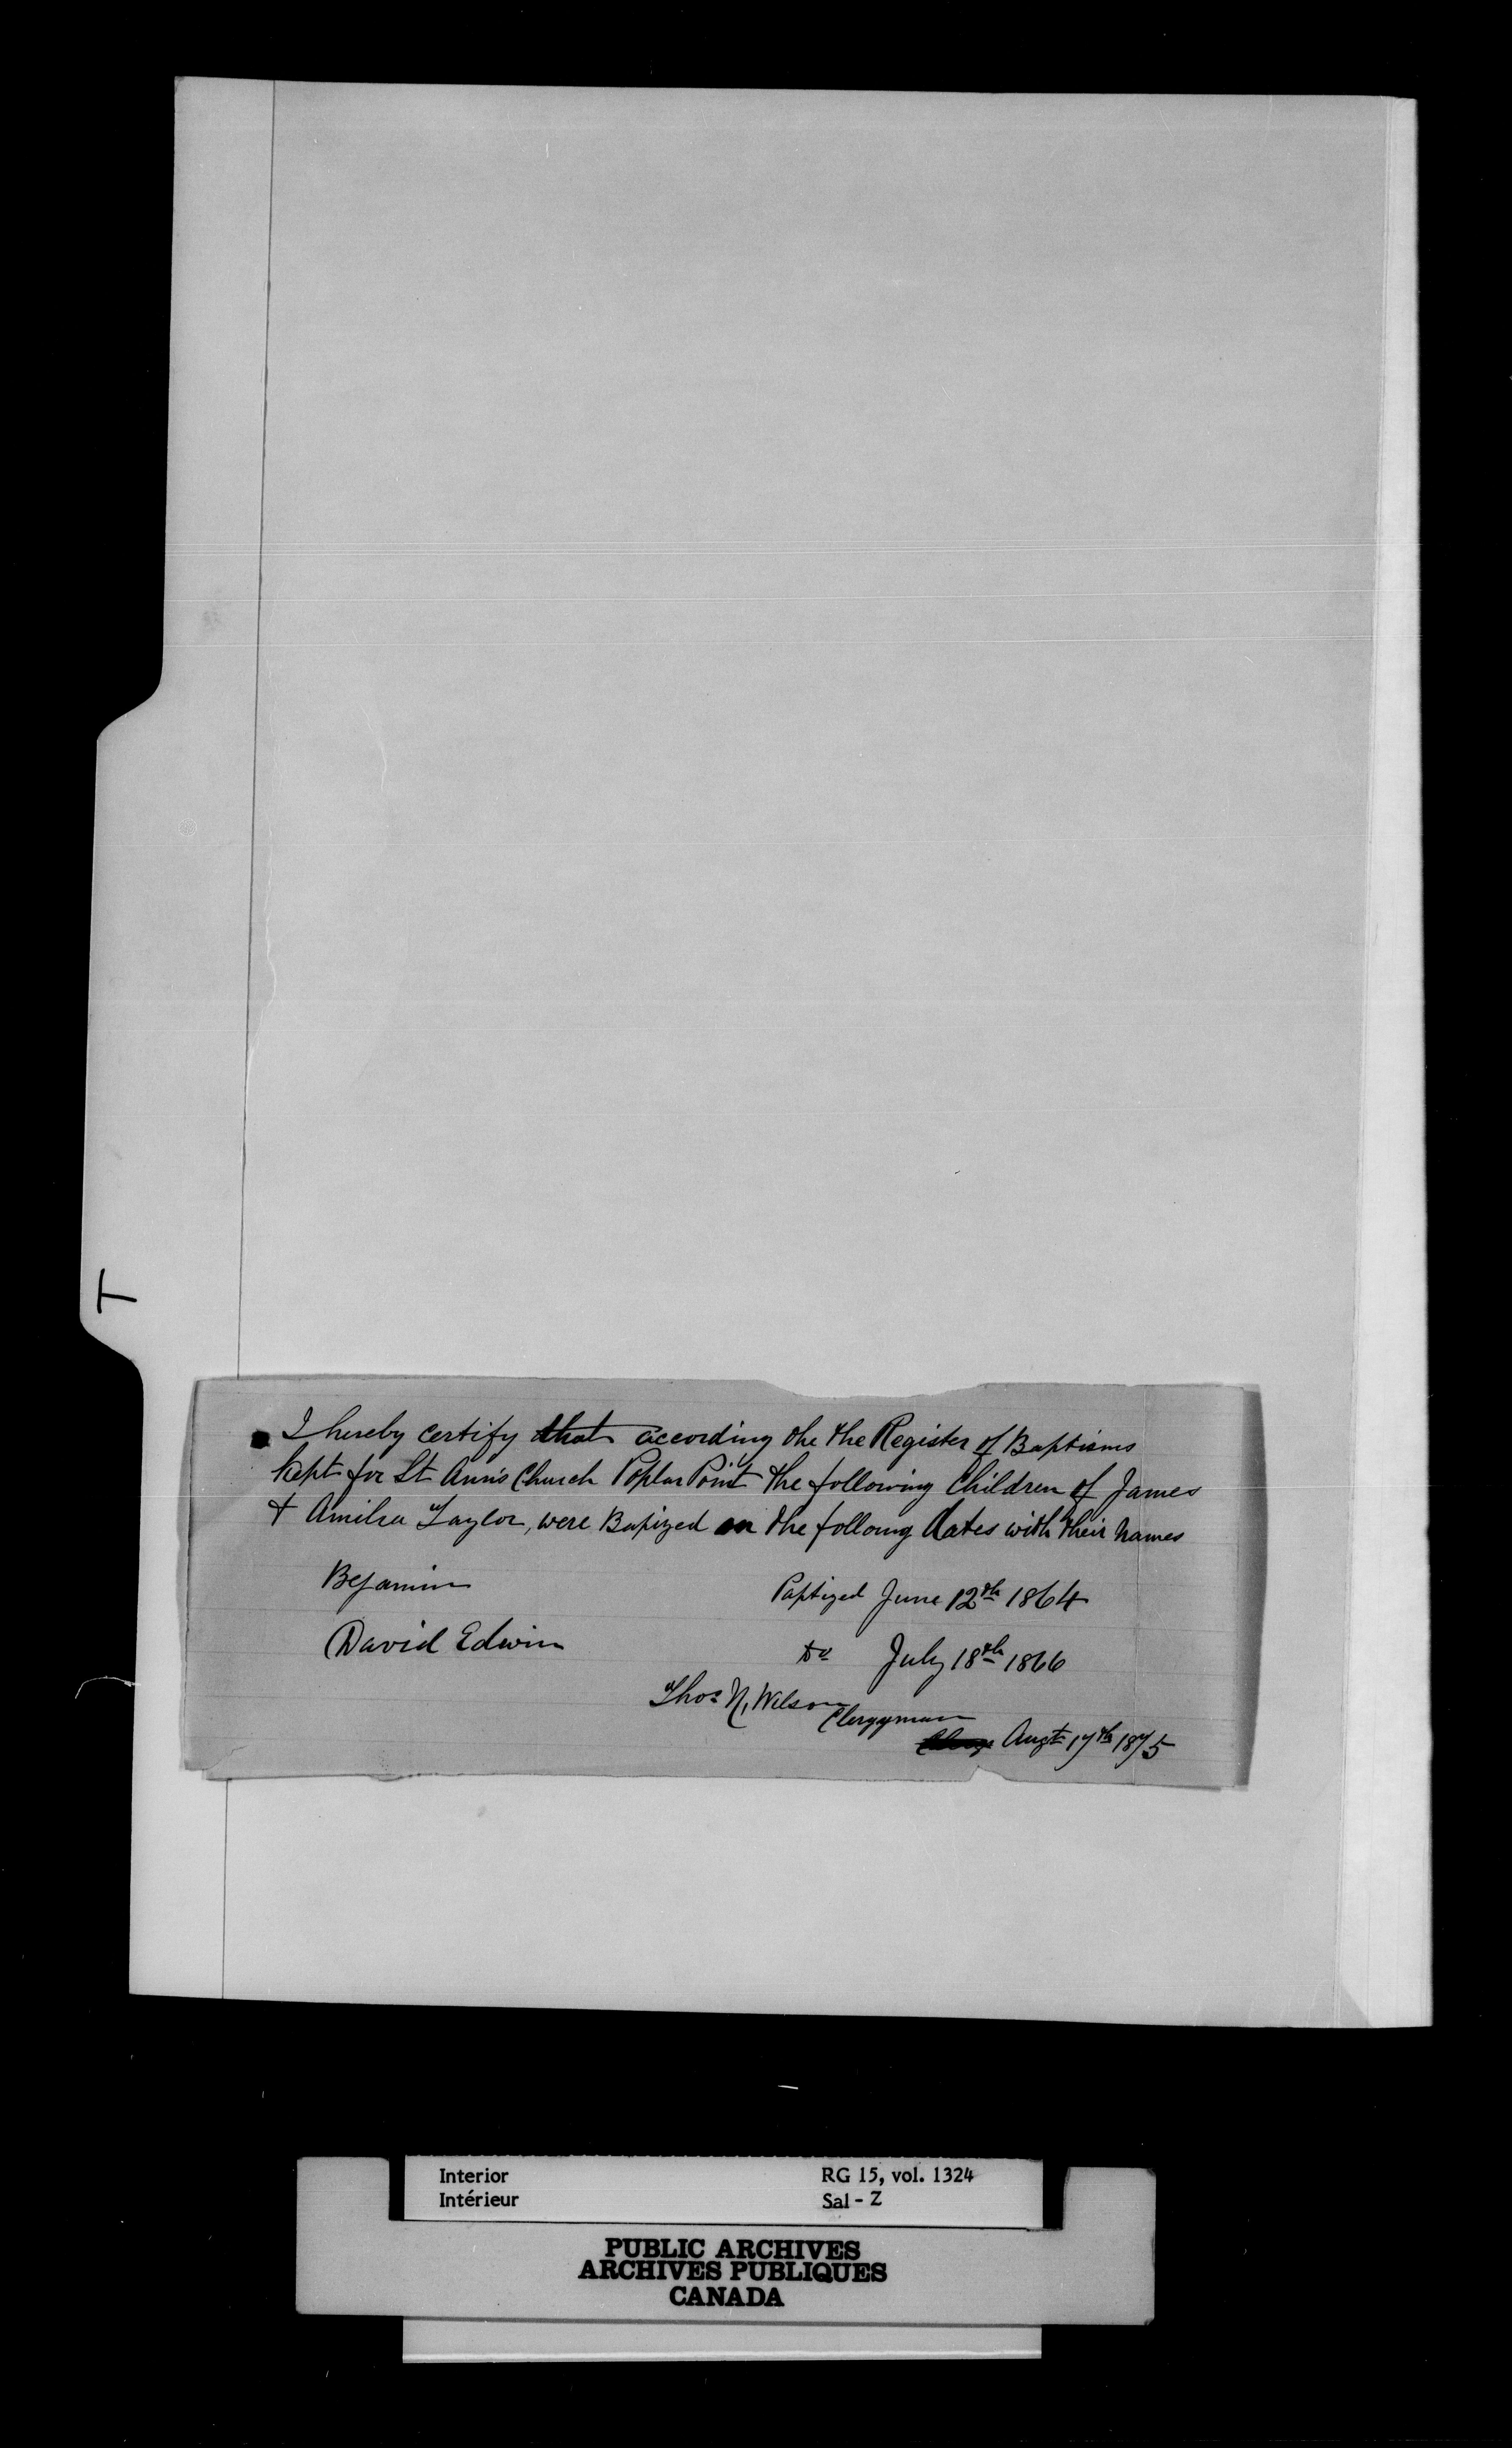 T
I hereby certify that according the the Register of Baptisms
kept for St Ann's Church Poplar Point the following Children of James
& Amilia Taylor, were Bapized on the following dates with their names
Bejamin Paptized June 12th 1864
David Edwin Do July 18th 1866
Thos N. Wilson
Clergyman
Augt 17th 1875
Interior RG 15, vol. 1324
Intérieur Sal - Z
PUBLIC ARCHIVES
ARCHIVES PUBLIQUES
CANADA